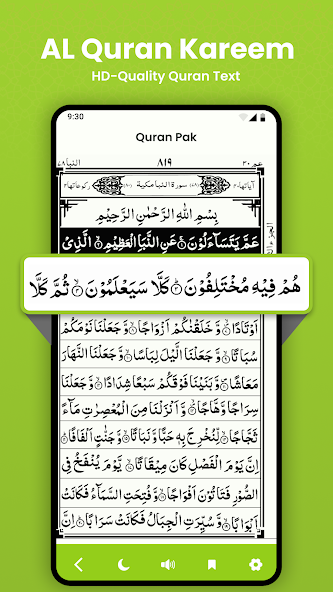 AL Quran Kareem
HD-Quality Quran Text
9:30
Quran Pak
النبا ٧٨
٨١٩
عم ٣٠
سورة النبا مكية
بِسْمِ اللّٰهِ الرَّحْمٰنِ الرَّحِيْمِ
عَمَّ يَتَسَآءَلُوْنَ ۝ عَنِ النَّبَاِ الْعَظِيْمِ ۝ الَّذِيْ
هُمْ فِيْهِ مُخْتَلِفُوْنَ ۝ كَلَّا سَيَعْلَمُوْنَ ۝ ثُمَّ كَلَّا
اَوْتَادًا ۝ وَّخَلَقْنٰكُمْ اَزْوَاجًا ۝ وَّجَعَلْنَا نَوْمَكُمْ
سُبَاتًا ۝ وَّجَعَلْنَا الَّيْلَ لِبَاسًا ۝ وَّجَعَلْنَا النَّهَارَ
مَعَاشًا ۝ وَّبَنَيْنَا فَوْقَكُمْ سَبْعًا شِدَادًا ۝ وَّجَعَلْنَا
سِرَاجًا وَّهَّاجًا ۝ وَّاَنْزَلْنَا مِنَ الْمُعْصِرٰتِ مَآءً
ثَجَّاجًا ۝ لِّنُخْرِجَ بِهٖ حَبًّا وَّنَبَاتًا ۝ وَّجَنّٰتٍ اَلْفَافًا ۝
اِنَّ يَوْمَ الْفَصْلِ كَانَ مِيْقَاتًا ۝ يَّوْمَ يُنْفَخُ فِي
الصُّوْرِ فَتَاْتُوْنَ اَفْوَاجًا ۝ وَّفُتِحَتِ السَّمَآءُ فَكَانَتْ
اَبْوَابًا ۝ وَّسُيِّرَتِ الْجِبَالُ فَكَانَتْ سَرَابًا ۝ اِنَّ